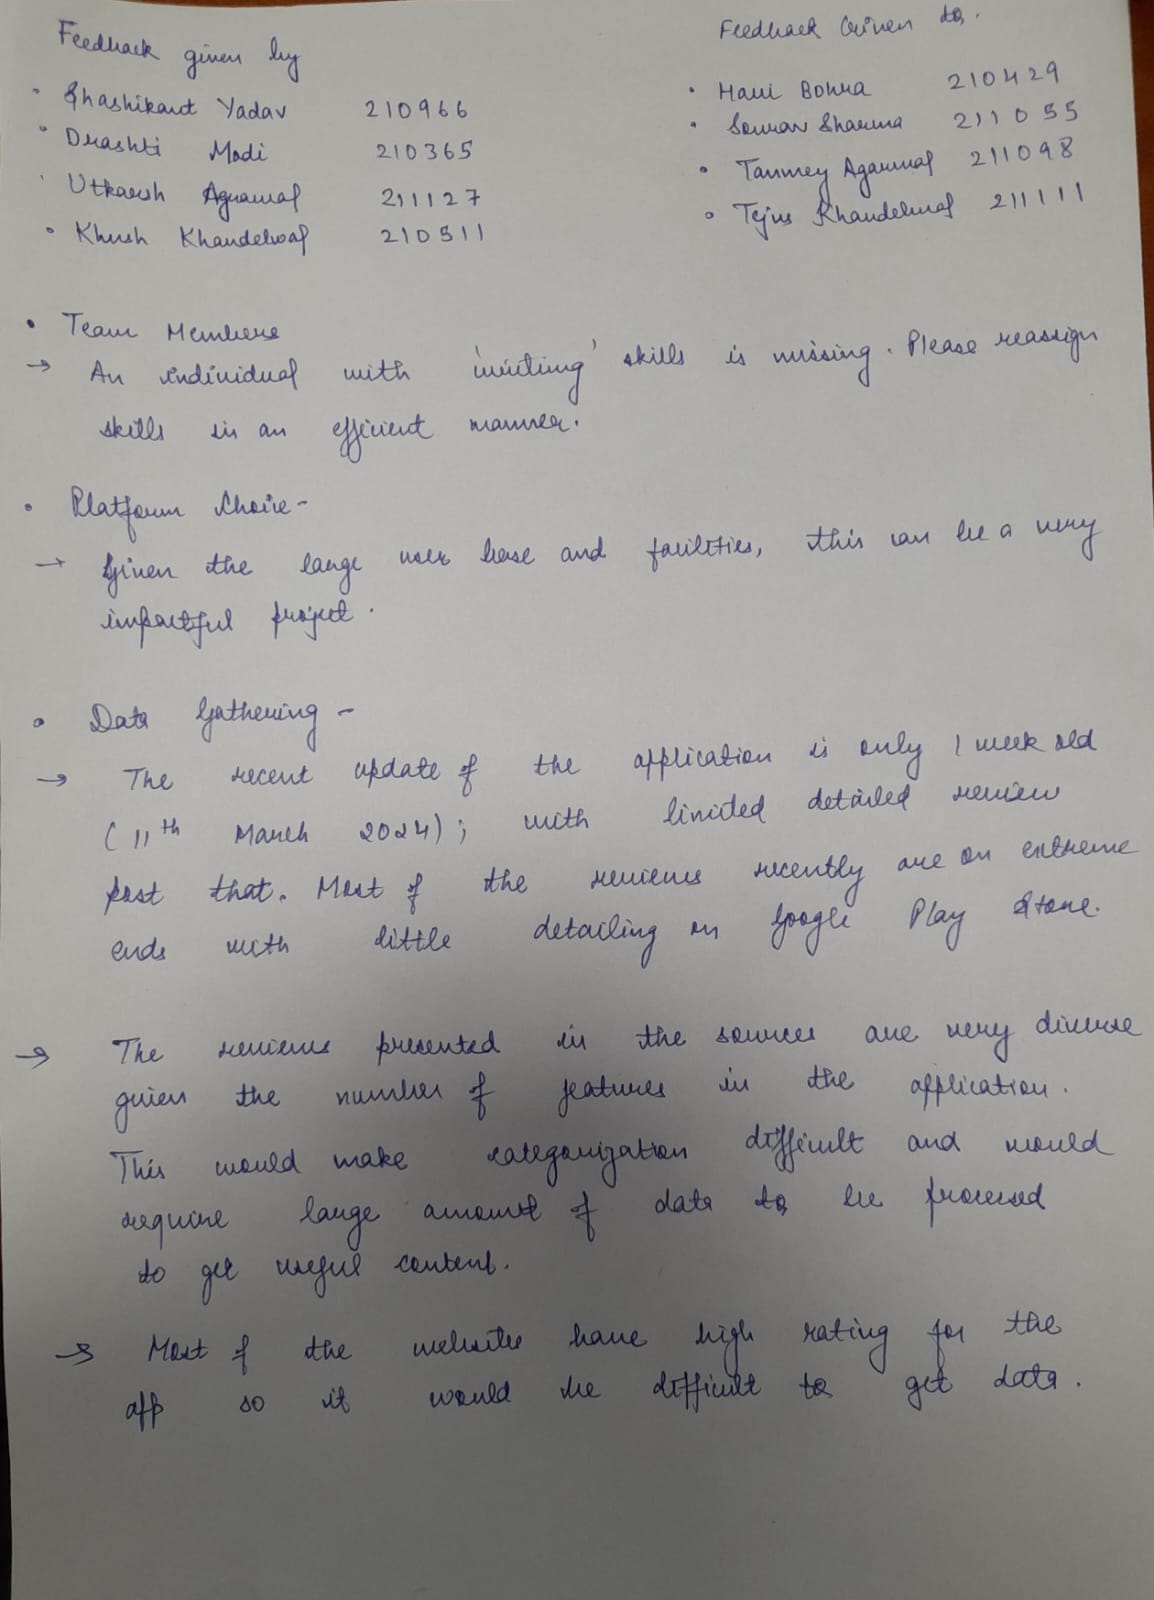 Feedback given by
• Shashikant Yadav 210966
• Drashti Modi 210365
• Utkarsh Agrawal 211127
• Khush Khandelwal 210511
Feedback Given to.
• Hani Bohra 210429
• Sourav Sharma 211055
• Tanmey Agarwal 211098
• Tejus Khandelwal 211111
• Team Members
→ An individual with 'writing' skills is missing. Please reassign
skills in an efficient manner.
• Platform Choice -
→ Given the large user base and facilities, this can be a very
impactful project.
• Data Gathering -
→ The recent update of the application is only 1 week old
(11th March 2024); with limited detailed review
post that. Most of the reviews recently are on extreme
ends with little detailing on Google Play Store.
→ The reviews presented in the sources are very diverse
given the number of features in the application.
This would make categorization difficult and would
require large amount of data to be processed
to get useful content.
→ Most of the website have high rating for the
app so it would be difficult to get data.